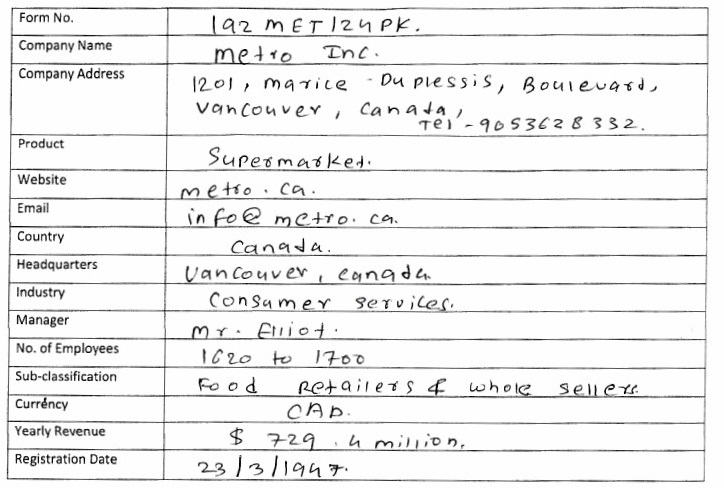 Form No. 192 MET/24PK.
Company Name metro Inc.
Company Address 1201, marice - Du plessis, Boulevard,
Vancouver, Canada,
Tel - 9053628332.
Product Supermarket.
Website metro.ca.
Email info@metro.ca.
Country Canada.
Headquarters Vancouver, canada
Industry Consumer services.
Manager mr. Elliot.
No. of Employees 1620 to 1700
Sub-classification Food Retailers & whole sellers
Currency CAD.
Yearly Revenue $ 729.4 million.
Registration Date 23/3/1947.